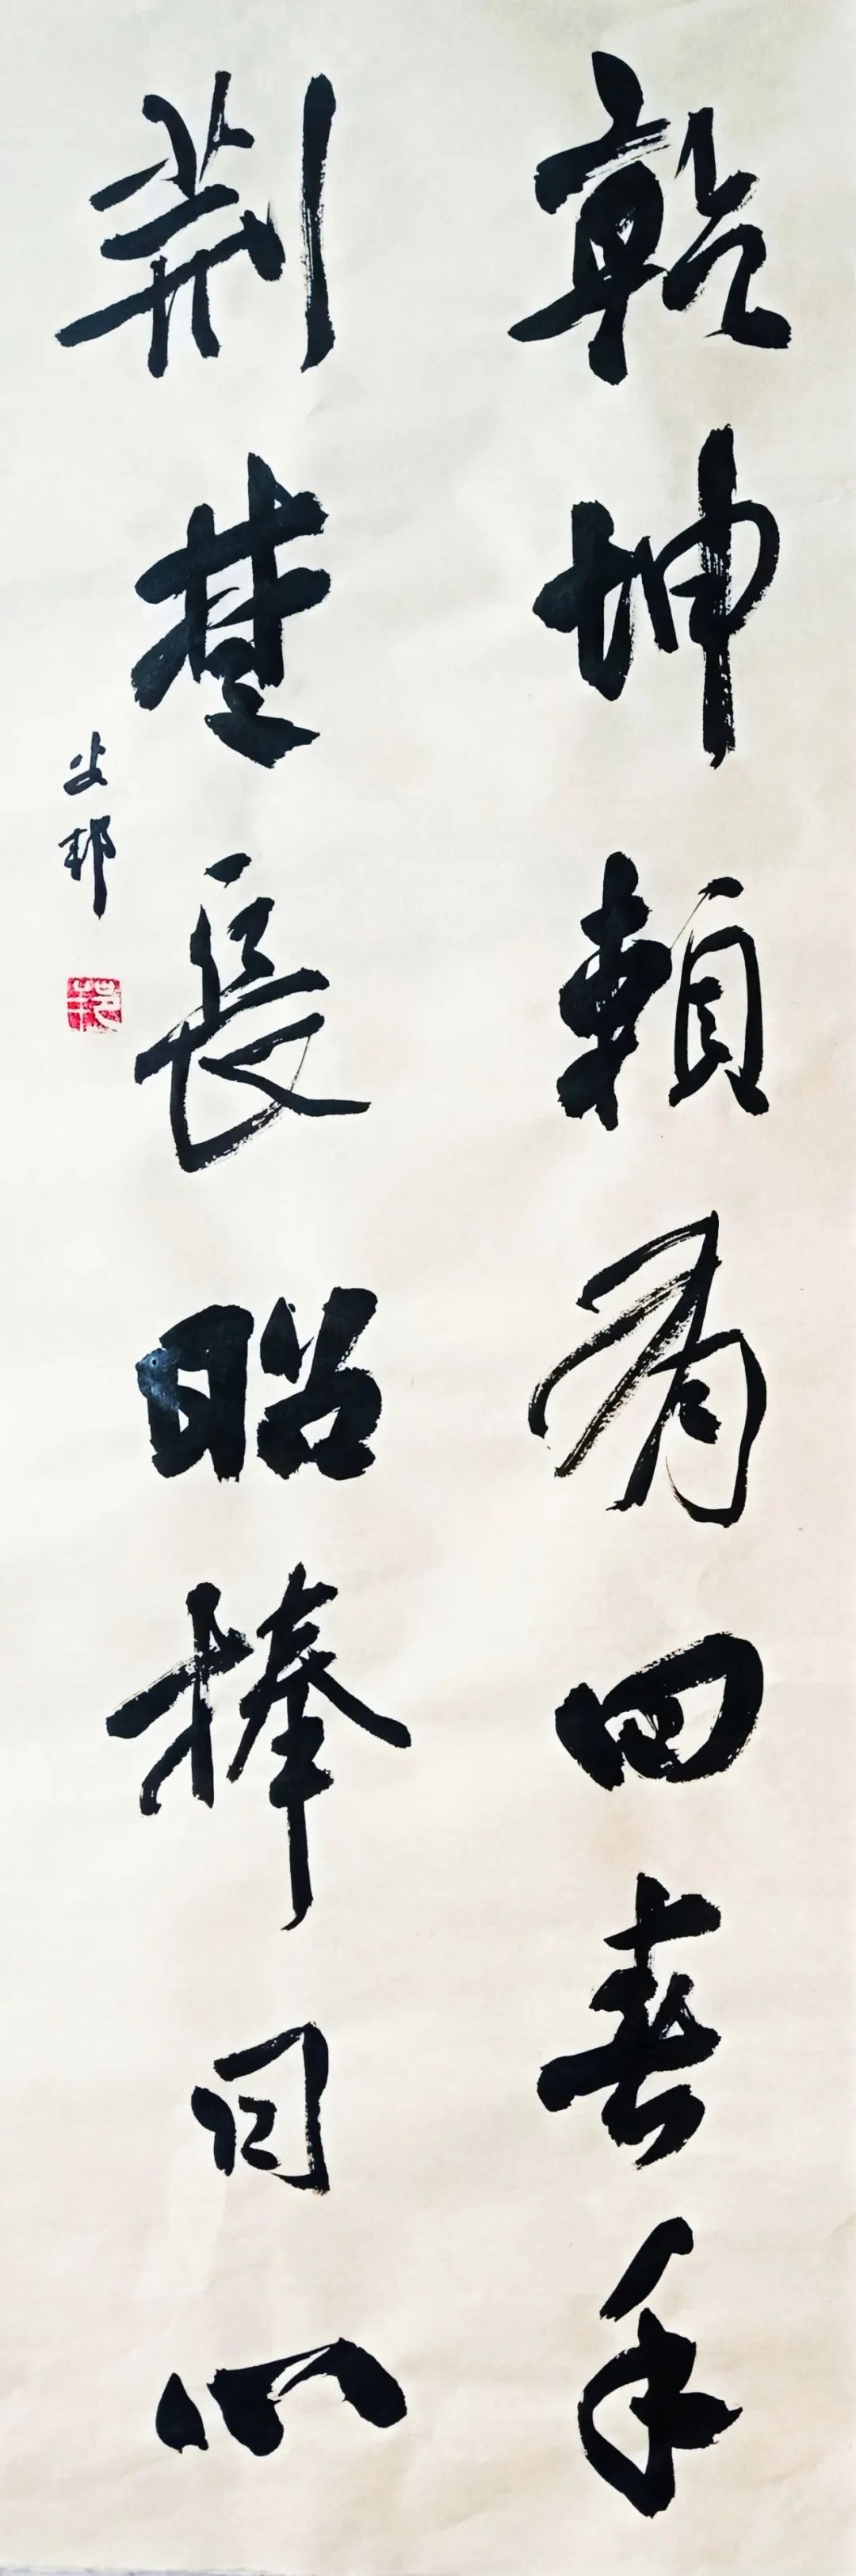 乾坤賴有回春手
荊楚長昭捧日心
安邦
邦